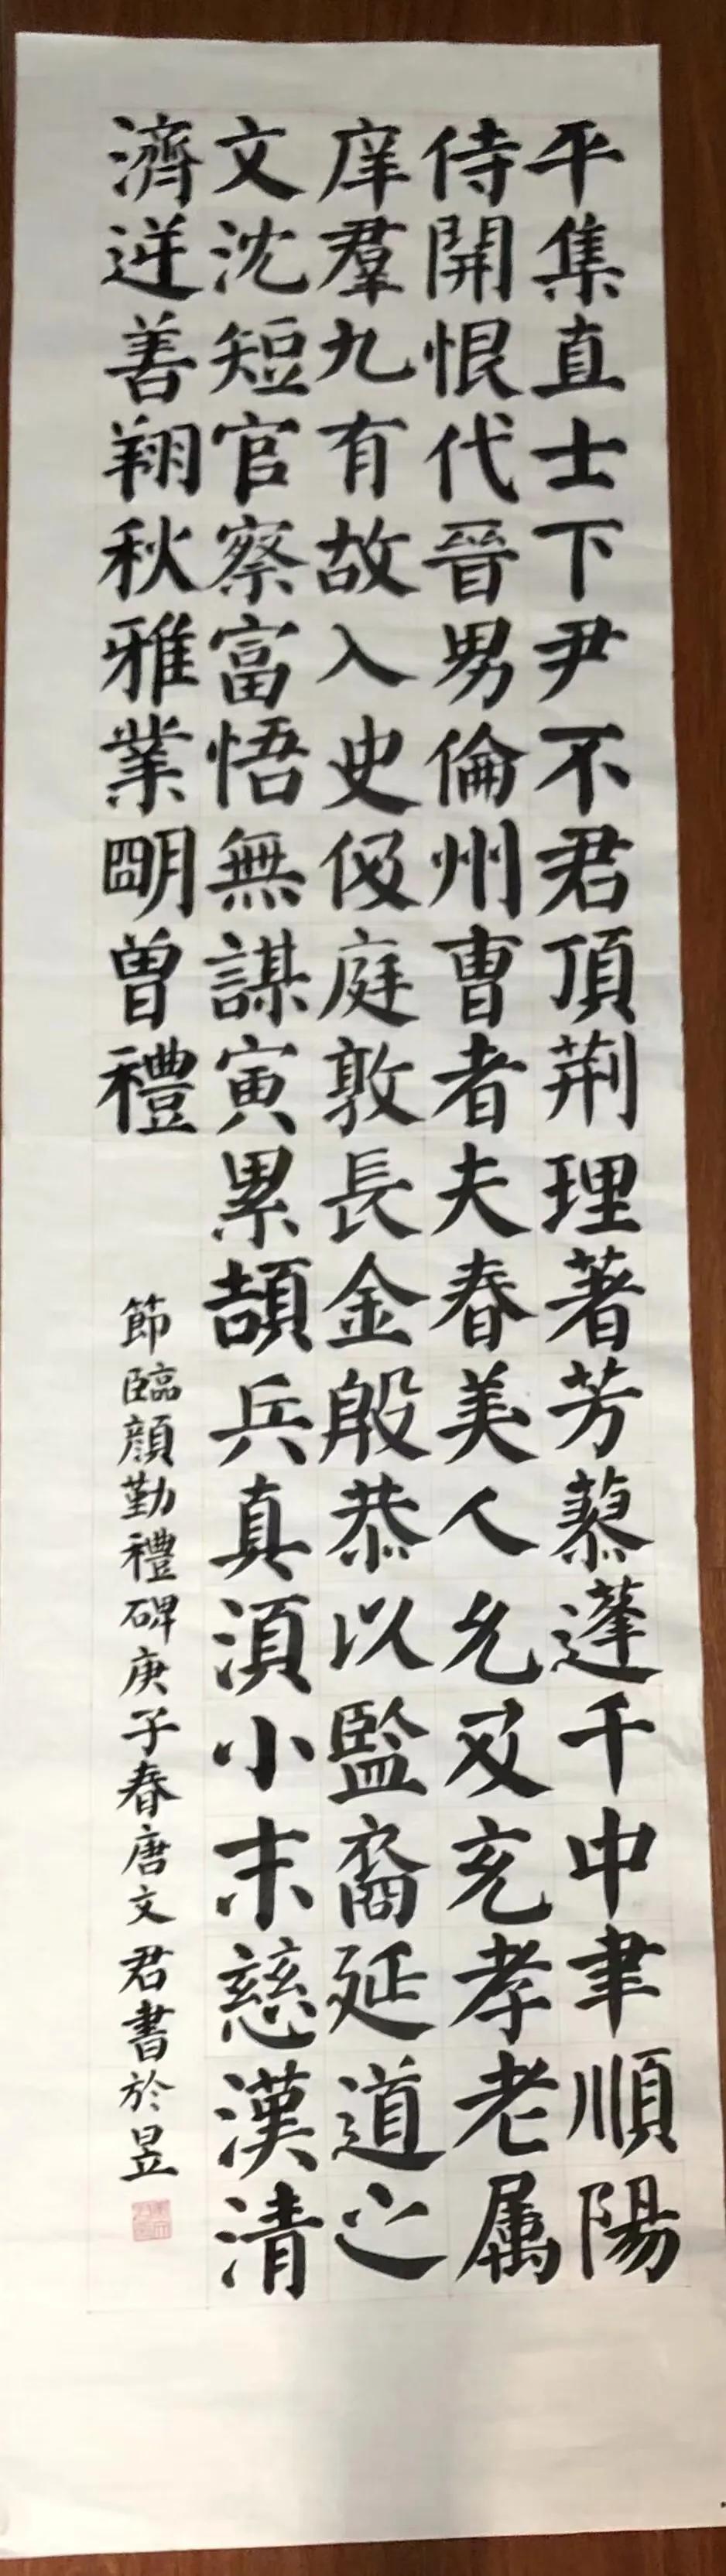 平集直士下尹不君頂荆理著芳慕蓬千中聿順陽
侍開恨代晉男倫州曺者夫春美人允及充孝老属
庠羣九有故入史伋庭敦長金殷恭以監裔延道之
文沈短官察富悟無謀寅累頡兵真湏小末慈漢清
濟逆善翔秋雅業明曾禮
節臨顔勤禮碑庚子春唐文君書於昱